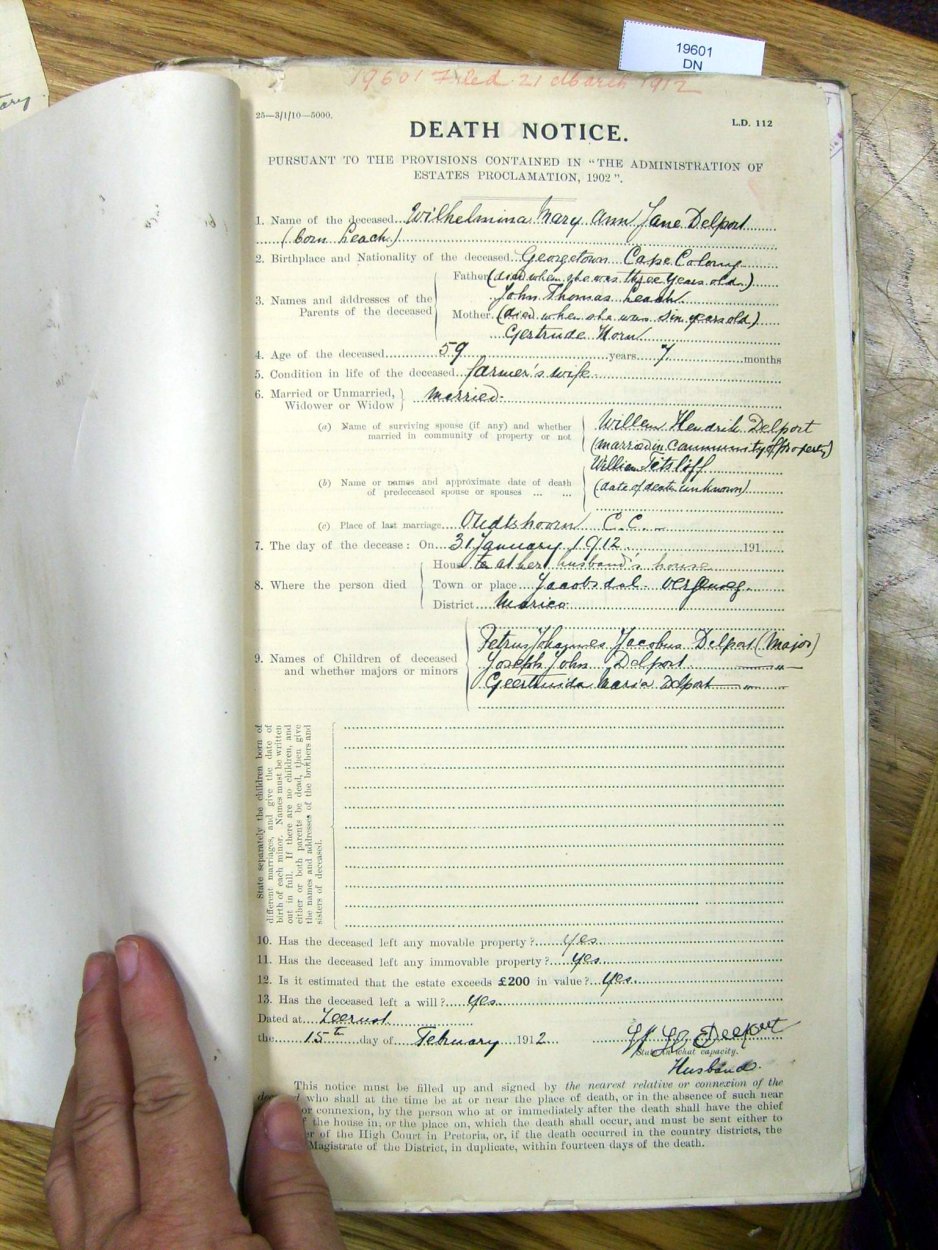 19601
DN
19601 Filed 21 March 1912
25—3/1/10—5000.
L.D. 112
DEATH NOTICE.
PURSUANT TO THE PROVISIONS CONTAINED IN "THE ADMINISTRATION OF
ESTATES PROCLAMATION, 1902".
1. Name of the deceased Wilhelmina Mary Ann Jane Delport
(born Leach)
2. Birthplace and Nationality of the deceased Georgetown Cape Colony
3. Names and addresses of the Parents of the deceased
Father (died when she was three years old.)
John Thomas Leach
Mother (died when she was six years old)
Gertrude Horn
4. Age of the deceased 59 years 7 months
5. Condition in life of the deceased farmer's wife
6. Married or Unmarried, Widower or Widow married.
(a) Name of surviving spouse (if any) and whether
married in community of property or not
Willem Hendrik Delport
(married in Community of Property)
(b) Name or names and approximate date of death
of predeceased spouse or spouses ... ...
William
(date of death unknown)
(c) Place of last marriage Oudtshoorn C.C.
7. The day of the decease: On 31 January 1912 191
8. Where the person died
House at her husband's house
Town or place Jacobsdal
District Marico
9. Names of Children of deceased
and whether majors or minors
Petrus Johannes Jacobus Delport (Major)
Joseph John Delport — " —
Geertruida Maria Delport — " —
State separately the children born of
different marriages, and give the date of
birth of each minor. Names must be written
out in full. If there are no children, and
either or both parents be dead, then give
the names and addresses of the brothers and
sisters of deceased.
10. Has the deceased left any movable property? Yes
11. Has the deceased left any immovable property? Yes
12. Is it estimated that the estate exceeds £200 in value? Yes.
13. Has the deceased left a will? Yes
Dated at Zeerust
the 15th day of February 1912
Delport
State in what capacity.
Husband.
This notice must be filled up and signed by the nearest relative or connexion of the
who shall at the time be at or near the place of death, or in the absence of such near
or connexion, by the person who at or immediately after the death shall have the chief
the house in, or the place on, which the death shall occur, and must be sent either to
of the High Court in Pretoria, or, if the death occurred in the country districts, the
Magistrate of the District, in duplicate, within fourteen days of the death.